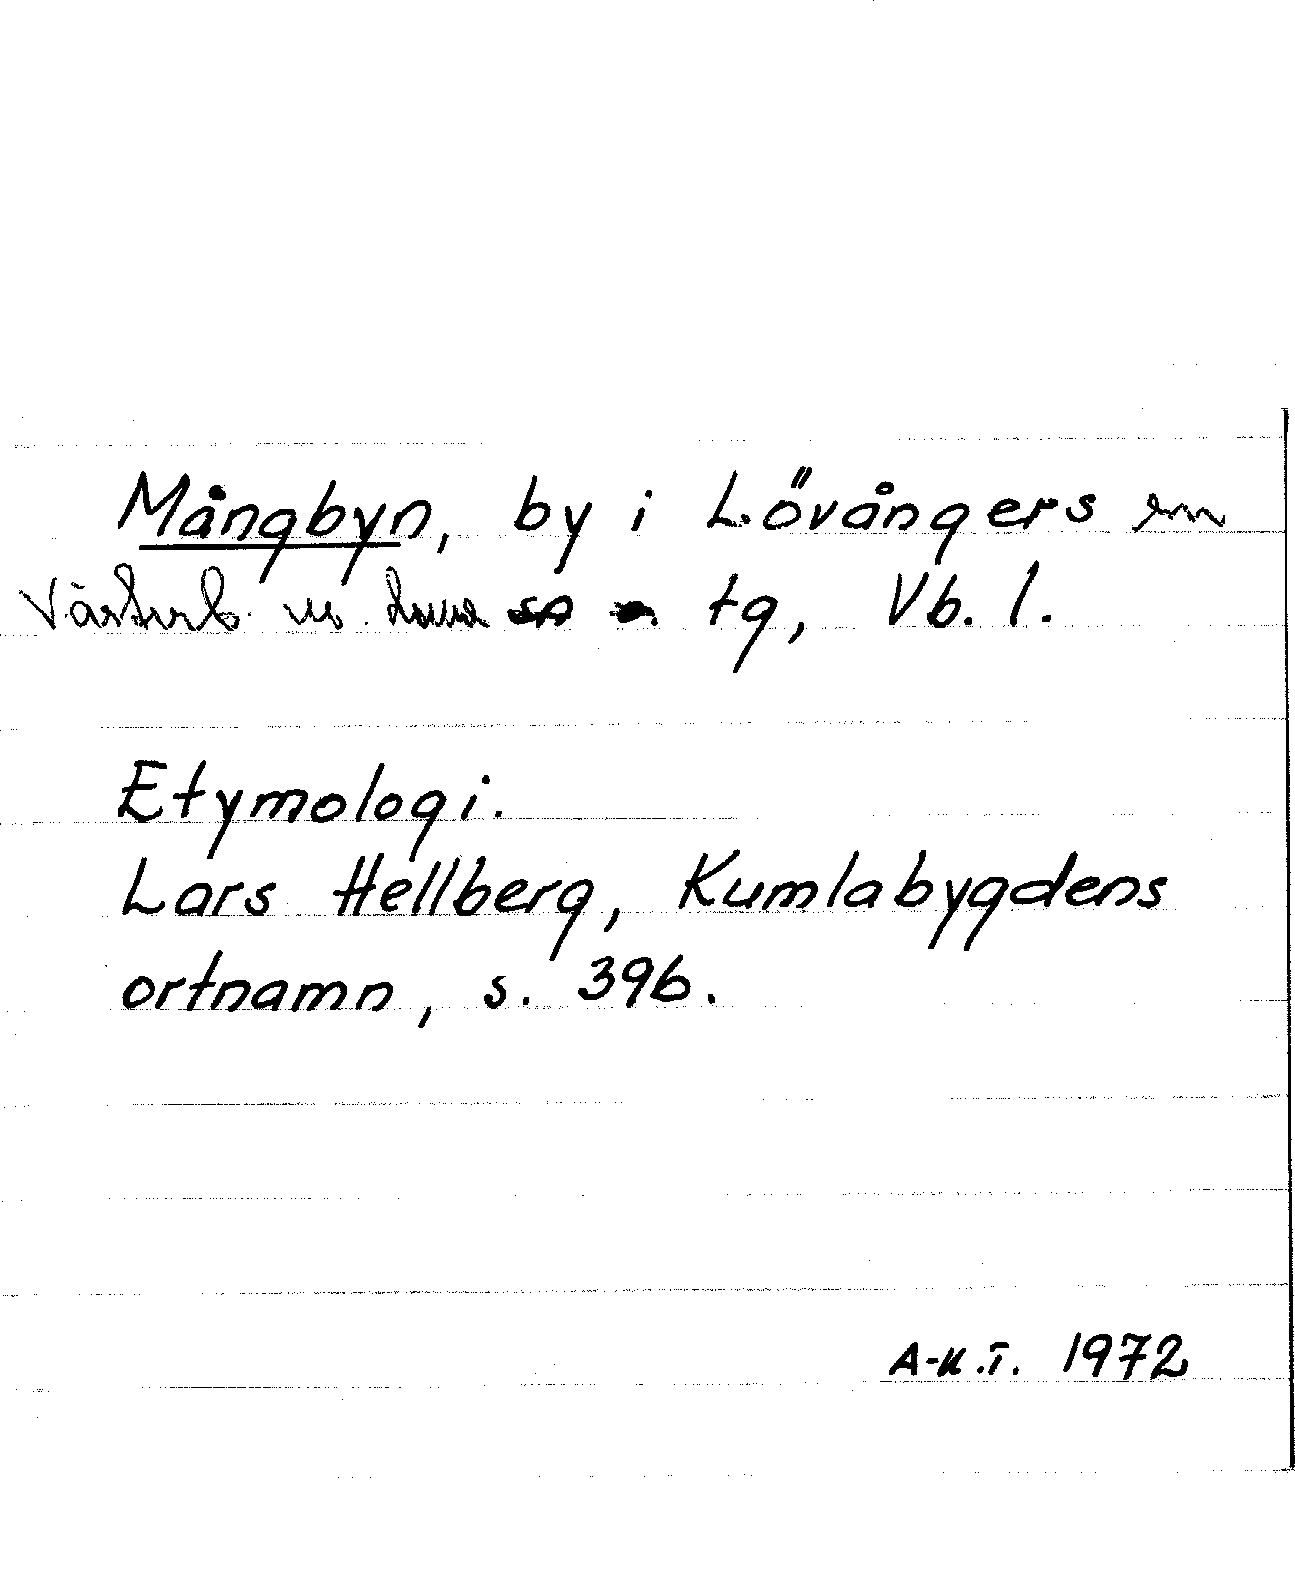 Mångbyn, by i Lövångers sn
Västerb. no. tg, Vb. l.
Etymologi.
Lars Hellberg, Kumlabygdens
ortnamn, s. 396.
A-K.T. 1972